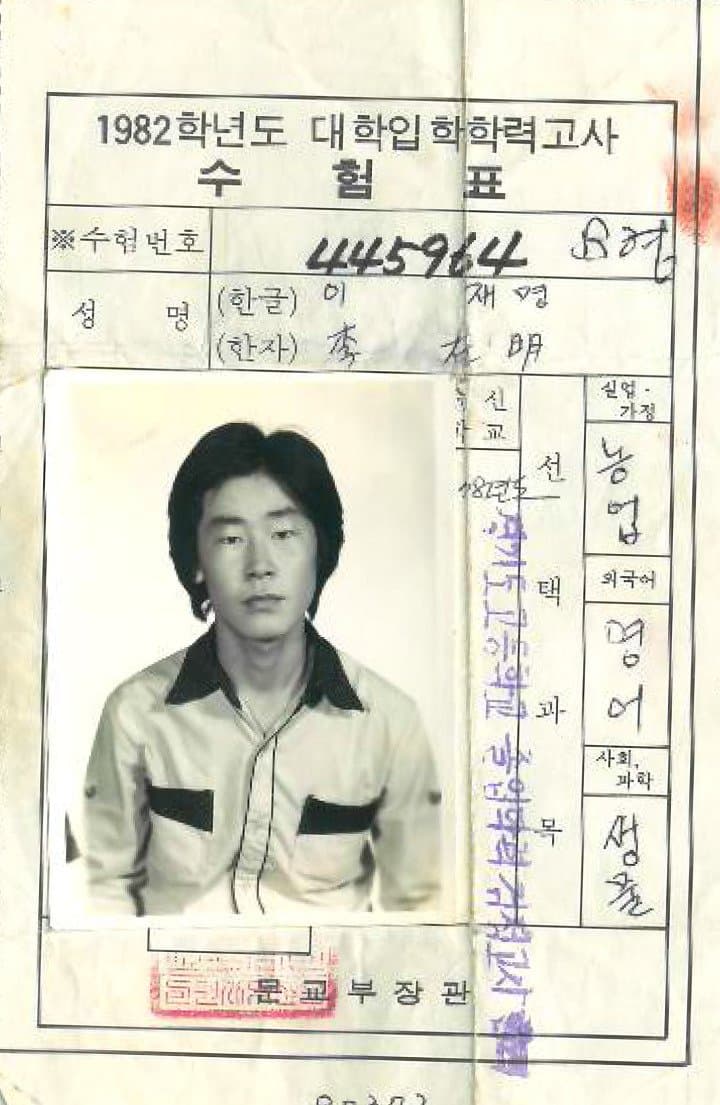 1982학년도 대학입학학력고사
수 험 표
※수험번호 445964 B형
성 명 (한글) 이 재 명
(한자) 李 在 明
신
교
78년도
경기도 고등학교 졸업학력 검정고시
선 택 과 목
실업·
가정
농업
외국어
영어
사회,
과학
생물
문 교 부 장 관